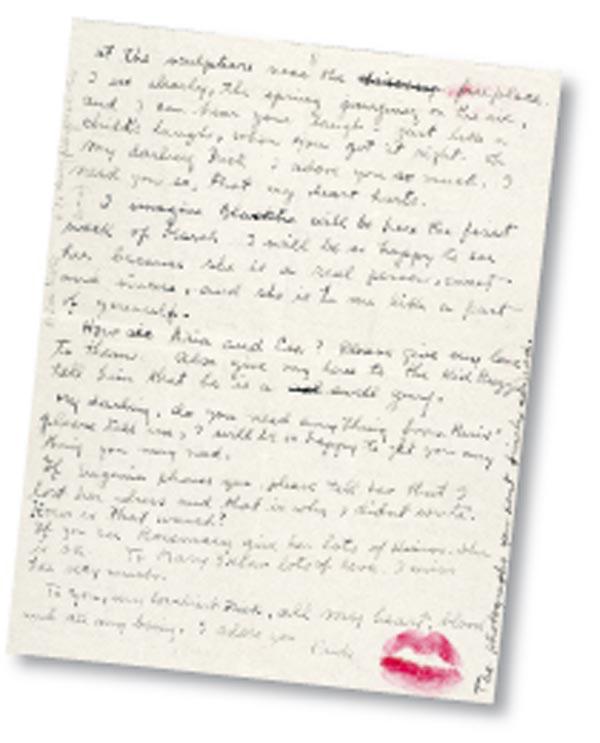 at the sculpture near the fireplace.
I see clearly, the spring on the air,
and I can hear your laugh - just like a
child's laugh, when you got it right. Oh
my darling Nick I adore you so much. I
need you so, that my heart hurts.
I imagine Blanche will be here the first
week of March. I will be so happy to see
her because she is a real person, sweet
and sincere, and she is to me like a part
of yourself.
How are Aria and Lea? Please give my love
to them. Also give my love to the Kid
tell him that he is a swell guy.
My darling, do you need anything from Paris?
please tell me, I will be so happy to get you any
thing you may need.
If Eugenia phones you, please tell her that I
lost her adress and that is why I didnt wrote.
How is that wench?
If you see Rosemary give her lots of kisses. She
is O.K. To Mary lots of love. I miss
her very much.
To you, my loveliest Nick, all my heart, blood
and all my being. I adore you
The photographs you sent